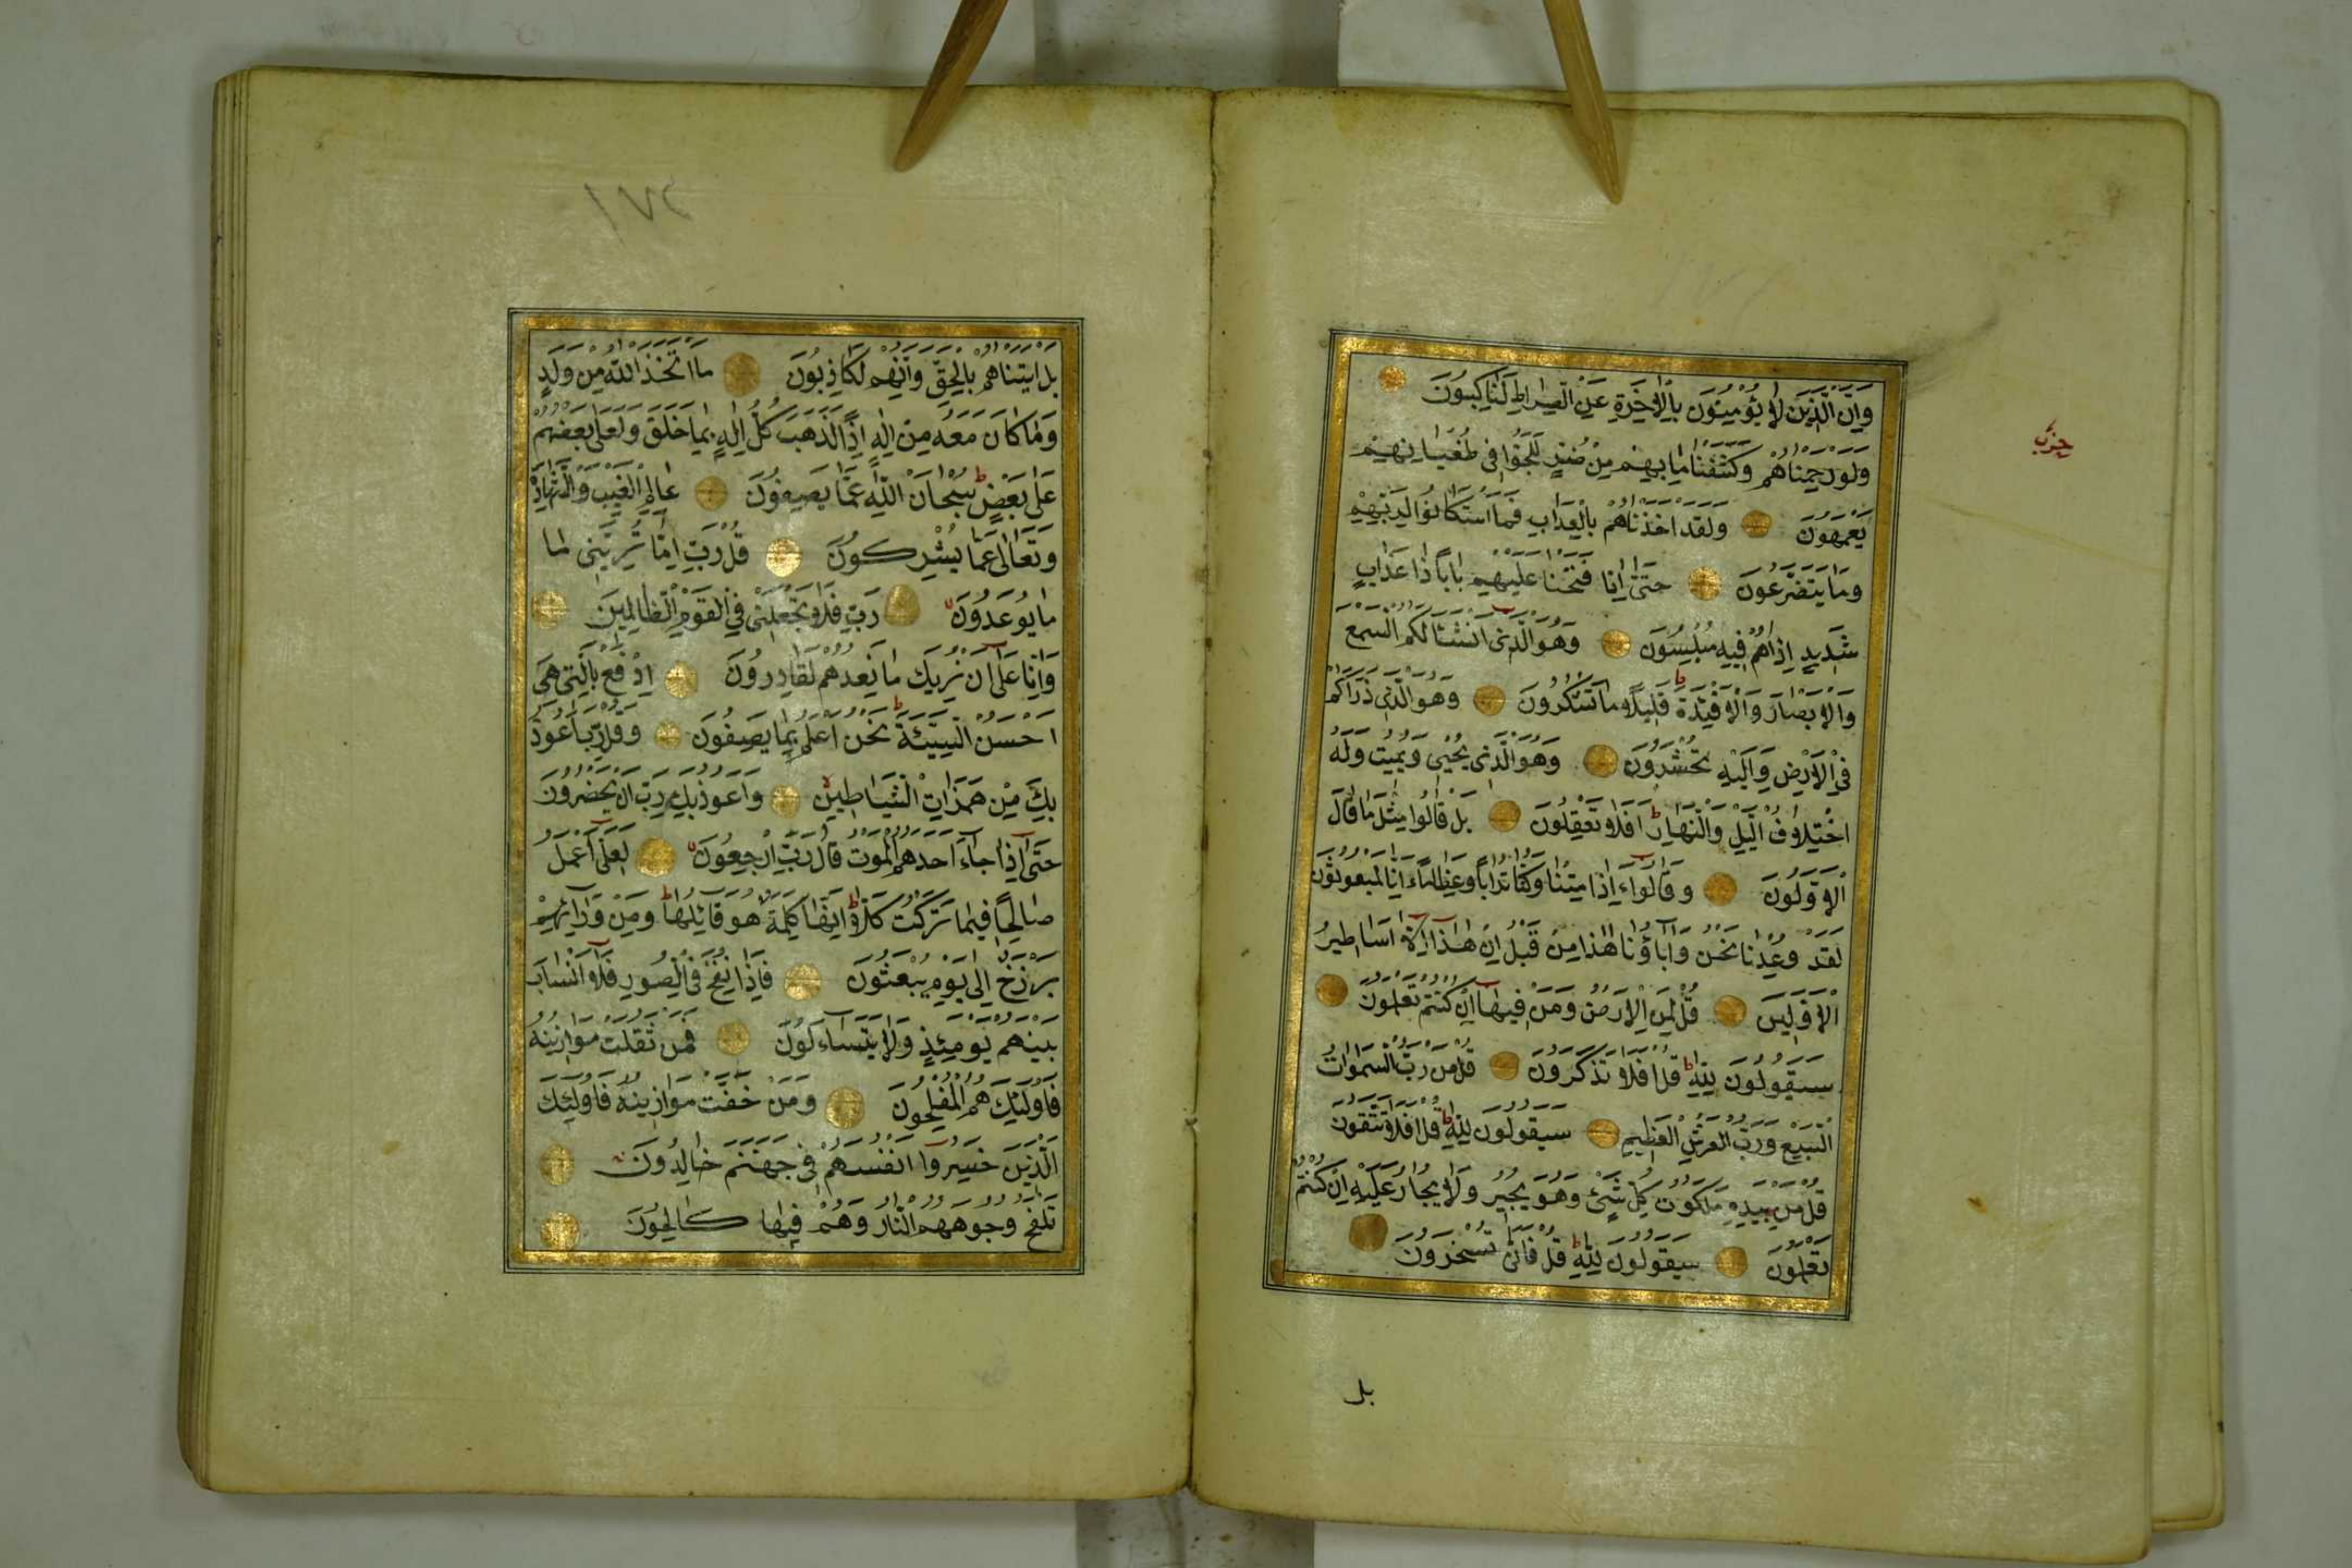 وَاِنَّ الَّذِينَ لَا يُؤْمِنُونَ بِالْاٰخِرَةِ عَنِ الصِّرَاطِ لَنَاكِبُونَ
وَلَوْ رَحِمْنَاهُمْ وَكَشَفْنَا مَا بِهِمْ مِنْ ضُرٍّ لَلَجُّوا فِي طُغْيَانِهِمْ
يَعْمَهُونَ وَلَقَدْ اَخَذْنَاهُمْ بِالْعَذَابِ فَمَا اسْتَكَانُوا لِرَبِّهِمْ
وَمَا يَتَضَرَّعُونَ حَتّٰى اِذَا فَتَحْنَا عَلَيْهِمْ بَابًا ذَا عَذَابٍ
شَدِيدٍ اِذَا هُمْ فِيهِ مُبْلِسُونَ وَهُوَ الَّذِي اَنْشَاَ لَكُمُ السَّمْعَ
وَالْاَبْصَارَ وَالْاَفْئِدَةَ قَلِيلًا مَا تَشْكُرُونَ وَهُوَ الَّذِي ذَرَاَكُمْ
فِي الْاَرْضِ وَاِلَيْهِ تُحْشَرُونَ وَهُوَ الَّذِي يُحْيِي وَيُمِيتُ وَلَهُ
اخْتِلَافُ الَّيْلِ وَالنَّهَارِ اَفَلَا تَعْقِلُونَ بَلْ قَالُوا مِثْلَ مَا قَالَ
الْاَوَّلُونَ وَقَالُوا ءَاِذَا مِتْنَا وَكُنَّا تُرَابًا وَعِظَامًا ءَاِنَّا لَمَبْعُوثُونَ
لَقَدْ وُعِدْنَا نَحْنُ وَاٰبَاؤُنَا هٰذَا مِنْ قَبْلُ اِنْ هٰذَا اِلَّا اَسَاطِيرُ
الْاَوَّلِينَ قُلْ لِمَنِ الْاَرْضُ وَمَنْ فِيهَا اِنْ كُنْتُمْ تَعْلَمُونَ
سَيَقُولُونَ لِلّٰهِ قُلْ اَفَلَا تَذَكَّرُونَ قُلْ مَنْ رَبُّ السَّمٰوَاتِ
السَّبْعِ وَرَبُّ الْعَرْشِ الْعَظِيمِ سَيَقُولُونَ لِلّٰهِ قُلْ اَفَلَا تَتَّقُونَ
قُلْ مَنْ بِيَدِهِ مَلَكُوتُ كُلِّ شَيْءٍ وَهُوَ يُجِيرُ وَلَا يُجَارُ عَلَيْهِ اِنْ كُنْتُمْ
تَعْلَمُونَ سَيَقُولُونَ لِلّٰهِ قُلْ فَاَنّٰى تُسْحَرُونَ
بل
حزب
بَلْ اَتَيْنَاهُمْ بِالْحَقِّ وَاِنَّهُمْ لَكَاذِبُونَ مَا اتَّخَذَ اللّٰهُ مِنْ وَلَدٍ
وَمَا كَانَ مَعَهُ مِنْ اِلٰهٍ اِذًا لَذَهَبَ كُلُّ اِلٰهٍ بِمَا خَلَقَ وَلَعَلَا بَعْضُهُمْ
عَلٰى بَعْضٍ سُبْحَانَ اللّٰهِ عَمَّا يَصِفُونَ عَالِمِ الْغَيْبِ وَالشَّهَادَةِ
وَتَعَالٰى عَمَّا يُشْرِكُونَ قُلْ رَبِّ اِمَّا تُرِيَنِّي مَا
مَا يُوعَدُونَ رَبِّ فَلَا تَجْعَلْنِي فِي الْقَوْمِ الظَّالِمِينَ
وَاِنَّا عَلٰى اَنْ نُرِيَكَ مَا نَعِدُهُمْ لَقَادِرُونَ اِدْفَعْ بِالَّتِي هِيَ
اَحْسَنُ السَّيِّئَةَ نَحْنُ اَعْلَمُ بِمَا يَصِفُونَ وَقُلْ رَبِّ اَعُوذُ
بِكَ مِنْ هَمَزَاتِ الشَّيَاطِينِ وَاَعُوذُ بِكَ رَبِّ اَنْ يَحْضُرُونَ
حَتّٰى اِذَا جَاءَ اَحَدَهُمُ الْمَوْتُ قَالَ رَبِّ ارْجِعُونَ لَعَلِّي اَعْمَلُ
صَالِحًا فِيمَا تَرَكْتُ كَلَّا اِنَّهَا كَلِمَةٌ هُوَ قَائِلُهَا وَمِنْ وَرَائِهِمْ
بَرْزَخٌ اِلٰى يَوْمِ يُبْعَثُونَ فَاِذَا نُفِخَ فِي الصُّورِ فَلَا اَنْسَابَ
بَيْنَهُمْ يَوْمَئِذٍ وَلَا يَتَسَاءَلُونَ فَمَنْ ثَقُلَتْ مَوَازِينُهُ
فَاُولٰئِكَ هُمُ الْمُفْلِحُونَ وَمَنْ خَفَّتْ مَوَازِينُهُ فَاُولٰئِكَ
الَّذِينَ خَسِرُوا اَنْفُسَهُمْ فِي جَهَنَّمَ خَالِدُونَ
تَلْفَحُ وُجُوهَهُمُ النَّارُ وَهُمْ فِيهَا كَالِحُونَ